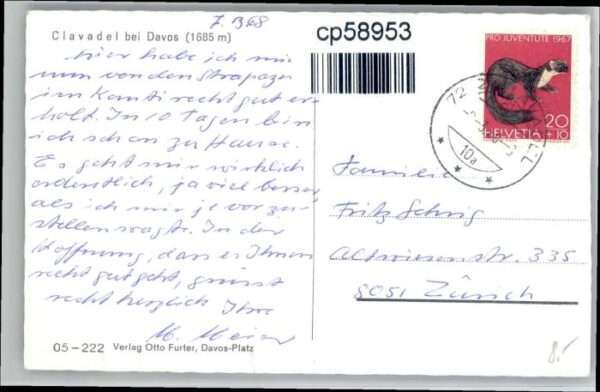 7. 3 68
Clavadel bei Davos (1685 m)
Hier habe ich mich
nun von den Strapazen
im Kanti recht gut er-
holt. In 10 Tagen bin
ich schon zu Hause.
Es geht mir wirklich
ordentlich, ja viel besser,
als ich mir je vorzu-
stellen wagte. In der
Hoffnung, dass es Ihnen
recht gut geht, grüsst
recht herzlich Ihre
M. Meier
05-222 Verlag Otto Furter, Davos-Platz
cp58953
PRO JUVENTUTE 1967
20
+10
HELVETIA
72
10a
Familie
Fritz
Altwiesenstr. 335
8051 Zürich
8.-